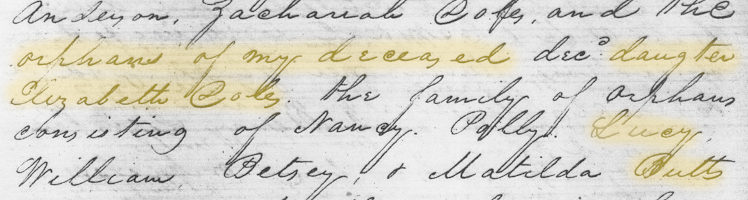 Anderson, Zachariah Coles, and the
orphans of my deceased decd daughter
Elizabeth Coles. the family of orphans
consisting of Nancy. Polly. Lucy,
William, Betsey, & Matilda Butts